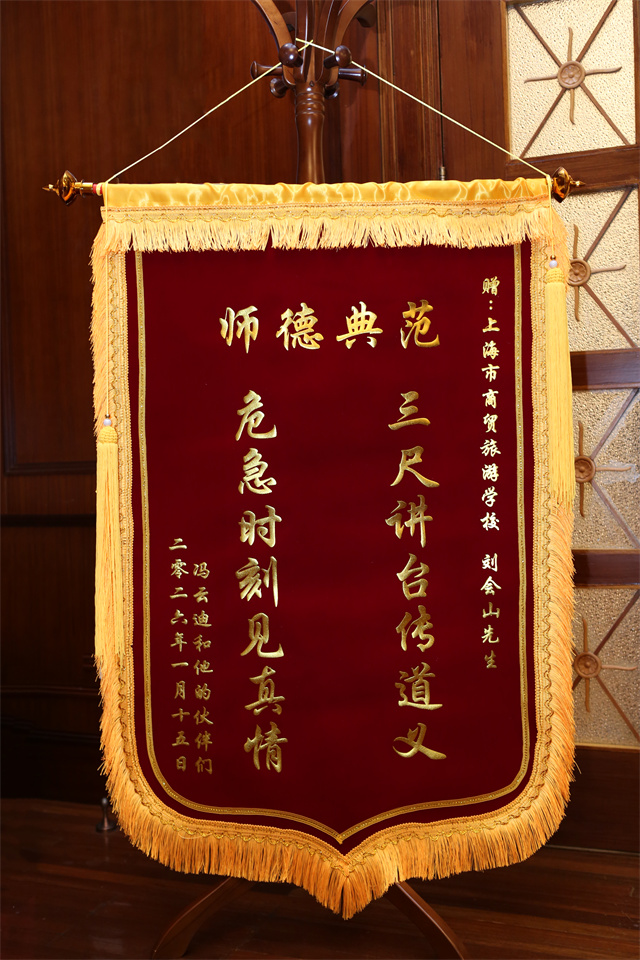 赠：上海市商贸旅游学校 刘会山先生
师德典范
三尺讲台传道义
危急时刻见真情
冯云迪和他的伙伴们
二零二六年一月十五日